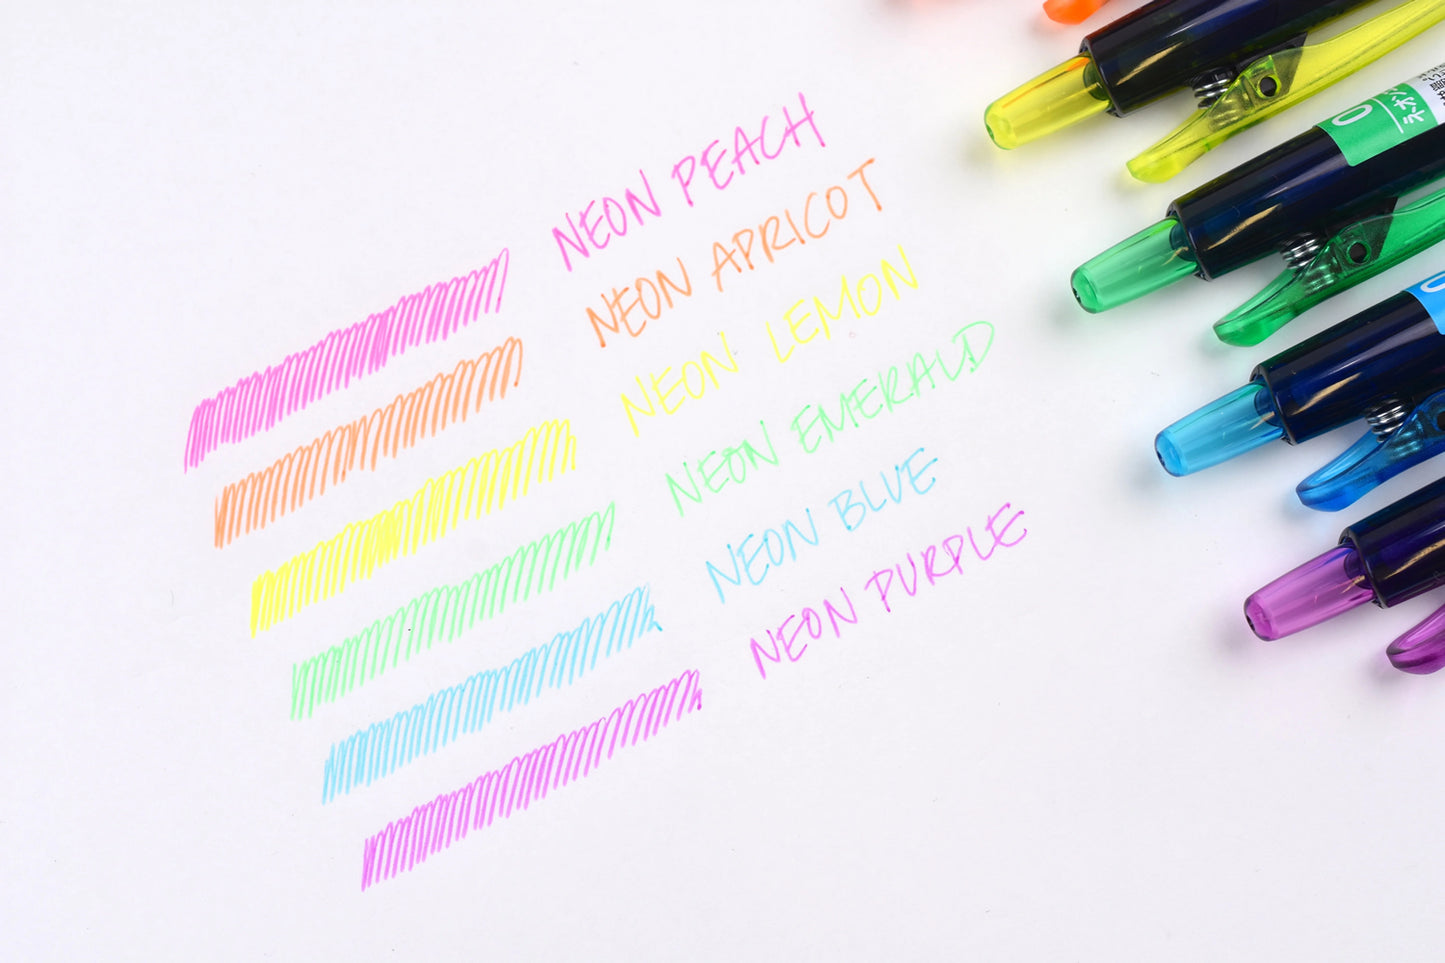 NEON PEACH
NEON APRICOT
NEON LEMON
NEON EMERALD
NEON BLUE
NEON PURPLE